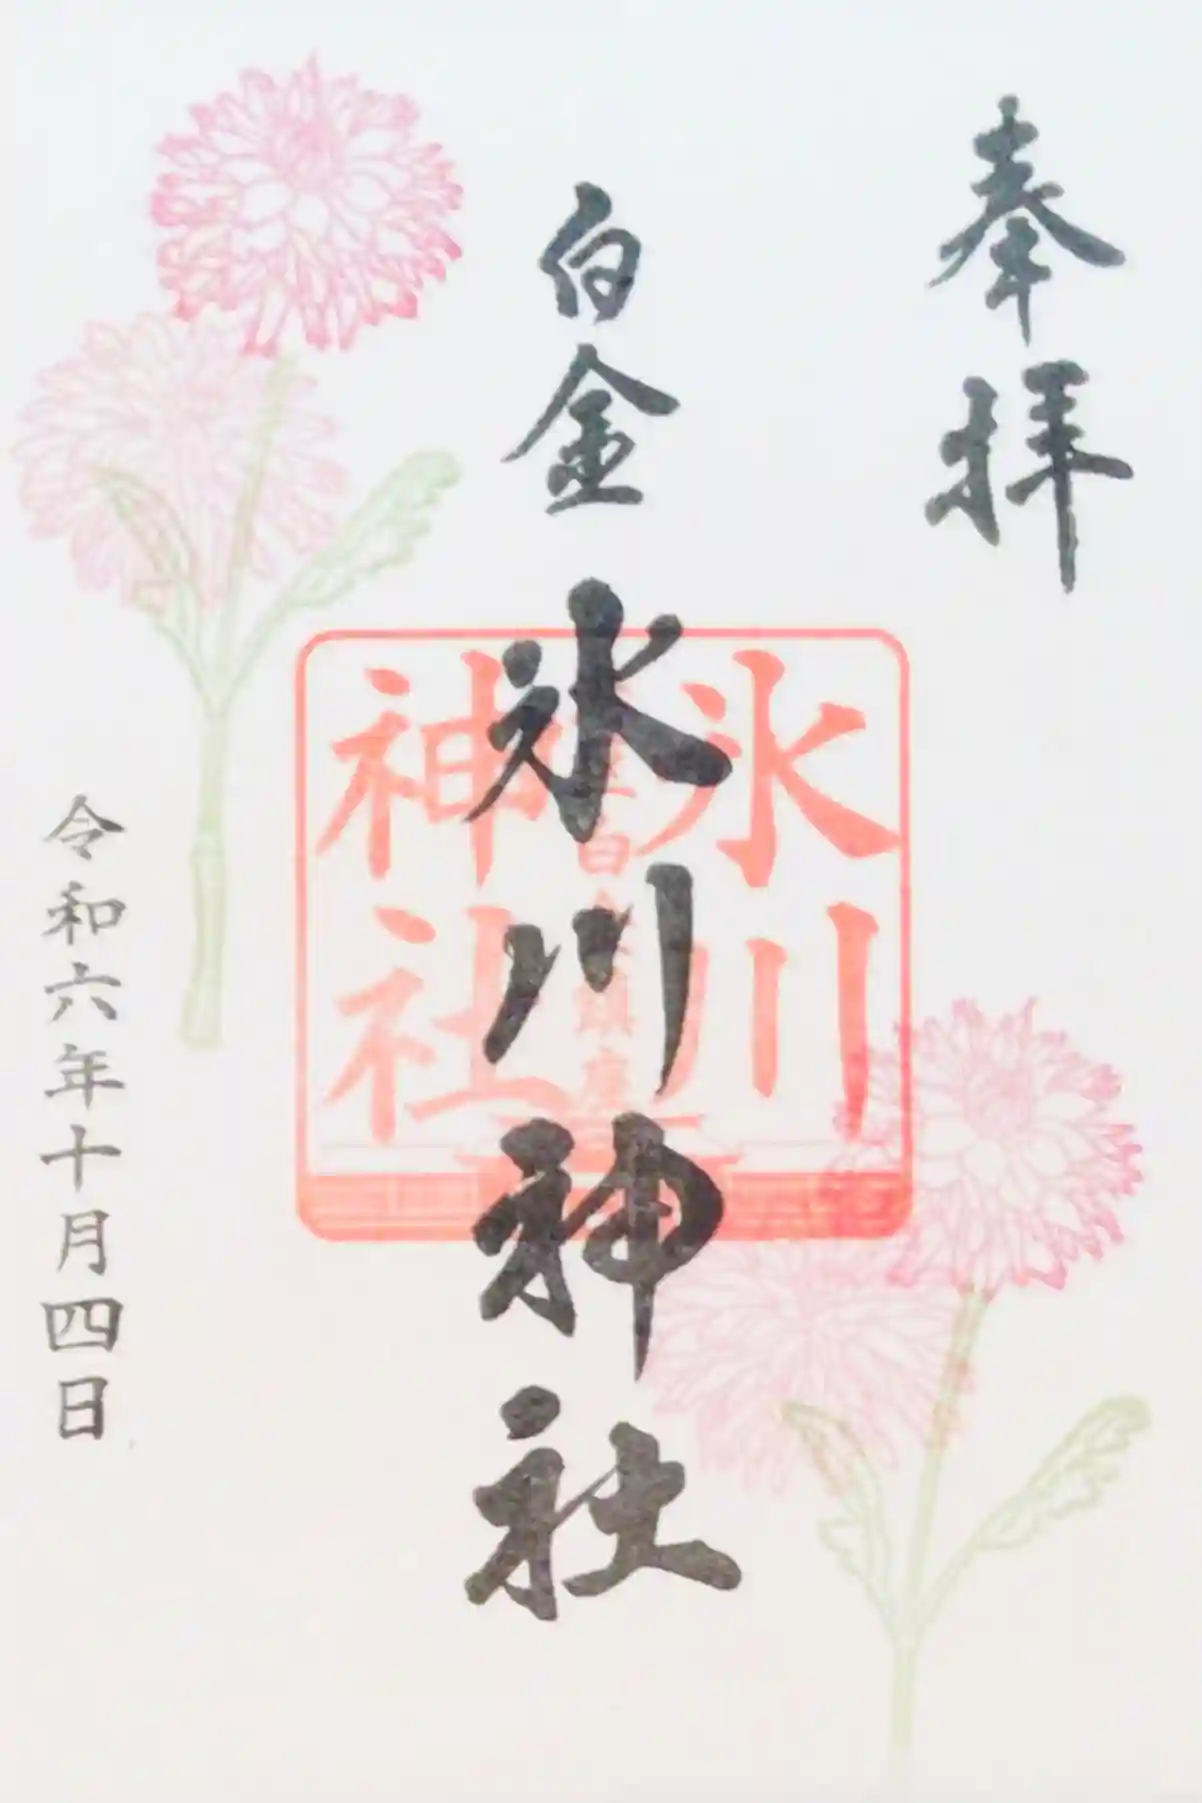 奉拝
白金
氷川神社
氷川
神社
令和六年十月四日